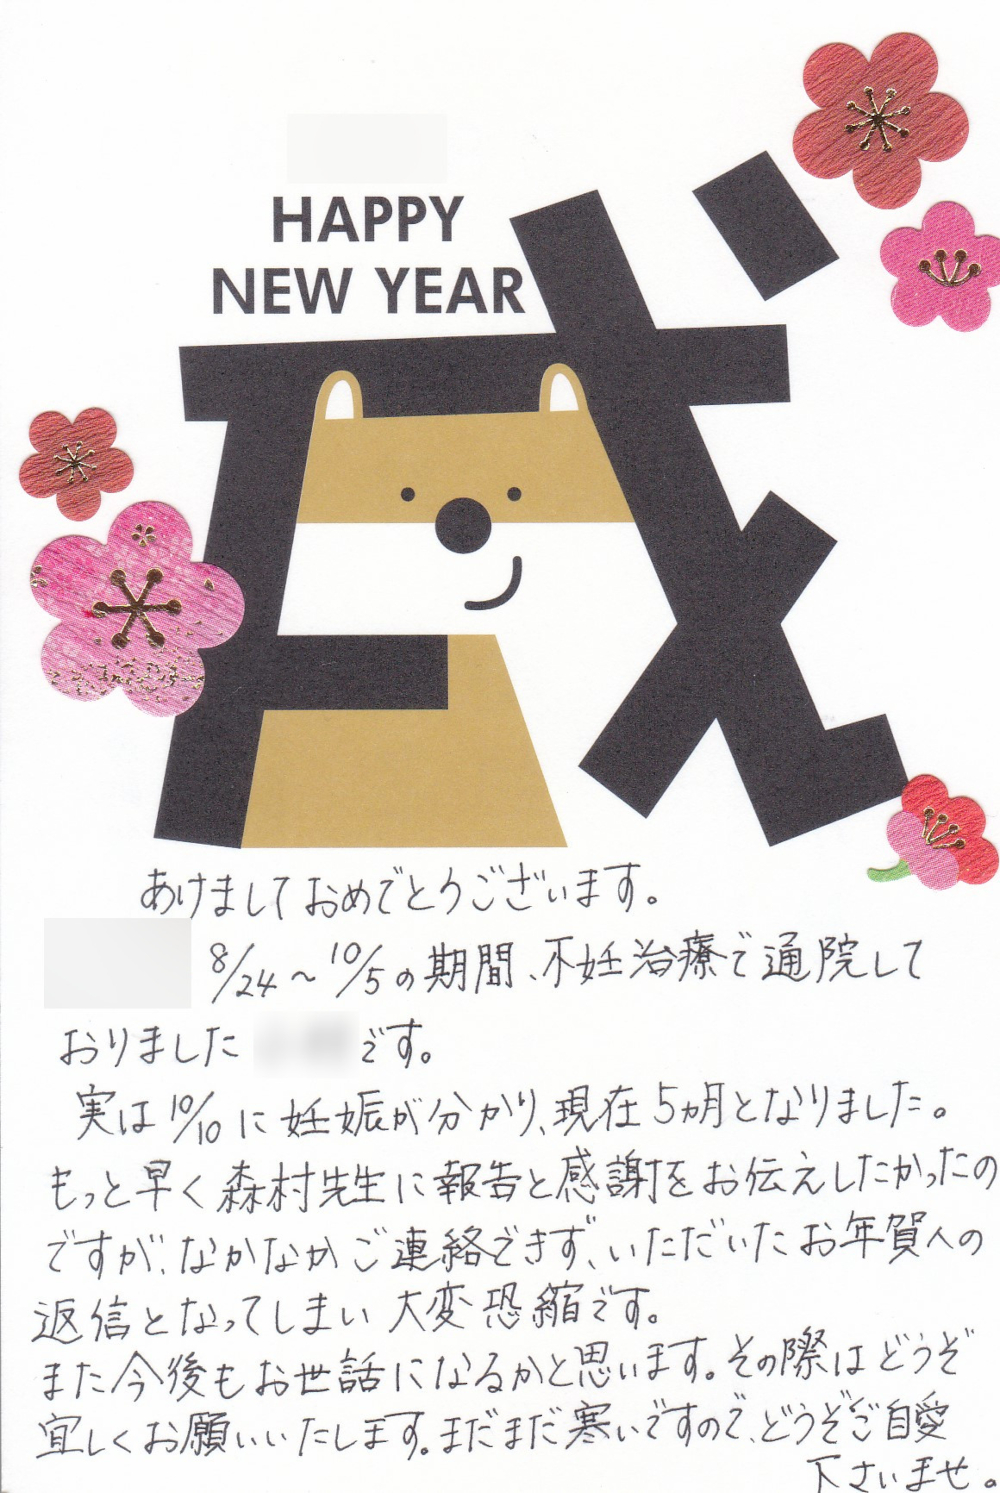 HAPPY
NEW YEAR
戌
あけましておめでとうございます。
8/24～10/5の期間、不妊治療で通院して
おりました です。
実は10/10に妊娠が分かり、現在5ヵ月となりました。
もっと早く森村先生に報告と感謝をお伝えしたかったの
ですが、なかなかご連絡できず、いただいたお年賀への
返信となってしまい大変恐縮です。
また今後もお世話になるかと思います。その際はどうぞ
宜しくお願いいたします。まだまだ寒いですので、どうぞご自愛
下さいませ。